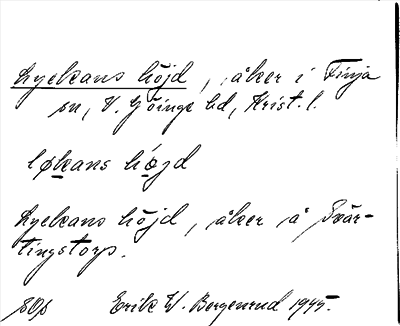 Lyckans höjd, åker i Finja
sn, V. Göinge hd, Krist. l.
løkans höjd
Lyckans höjd, åker å Svär-
tingstorp.
SOp Erik W. Bergenrud 1945.